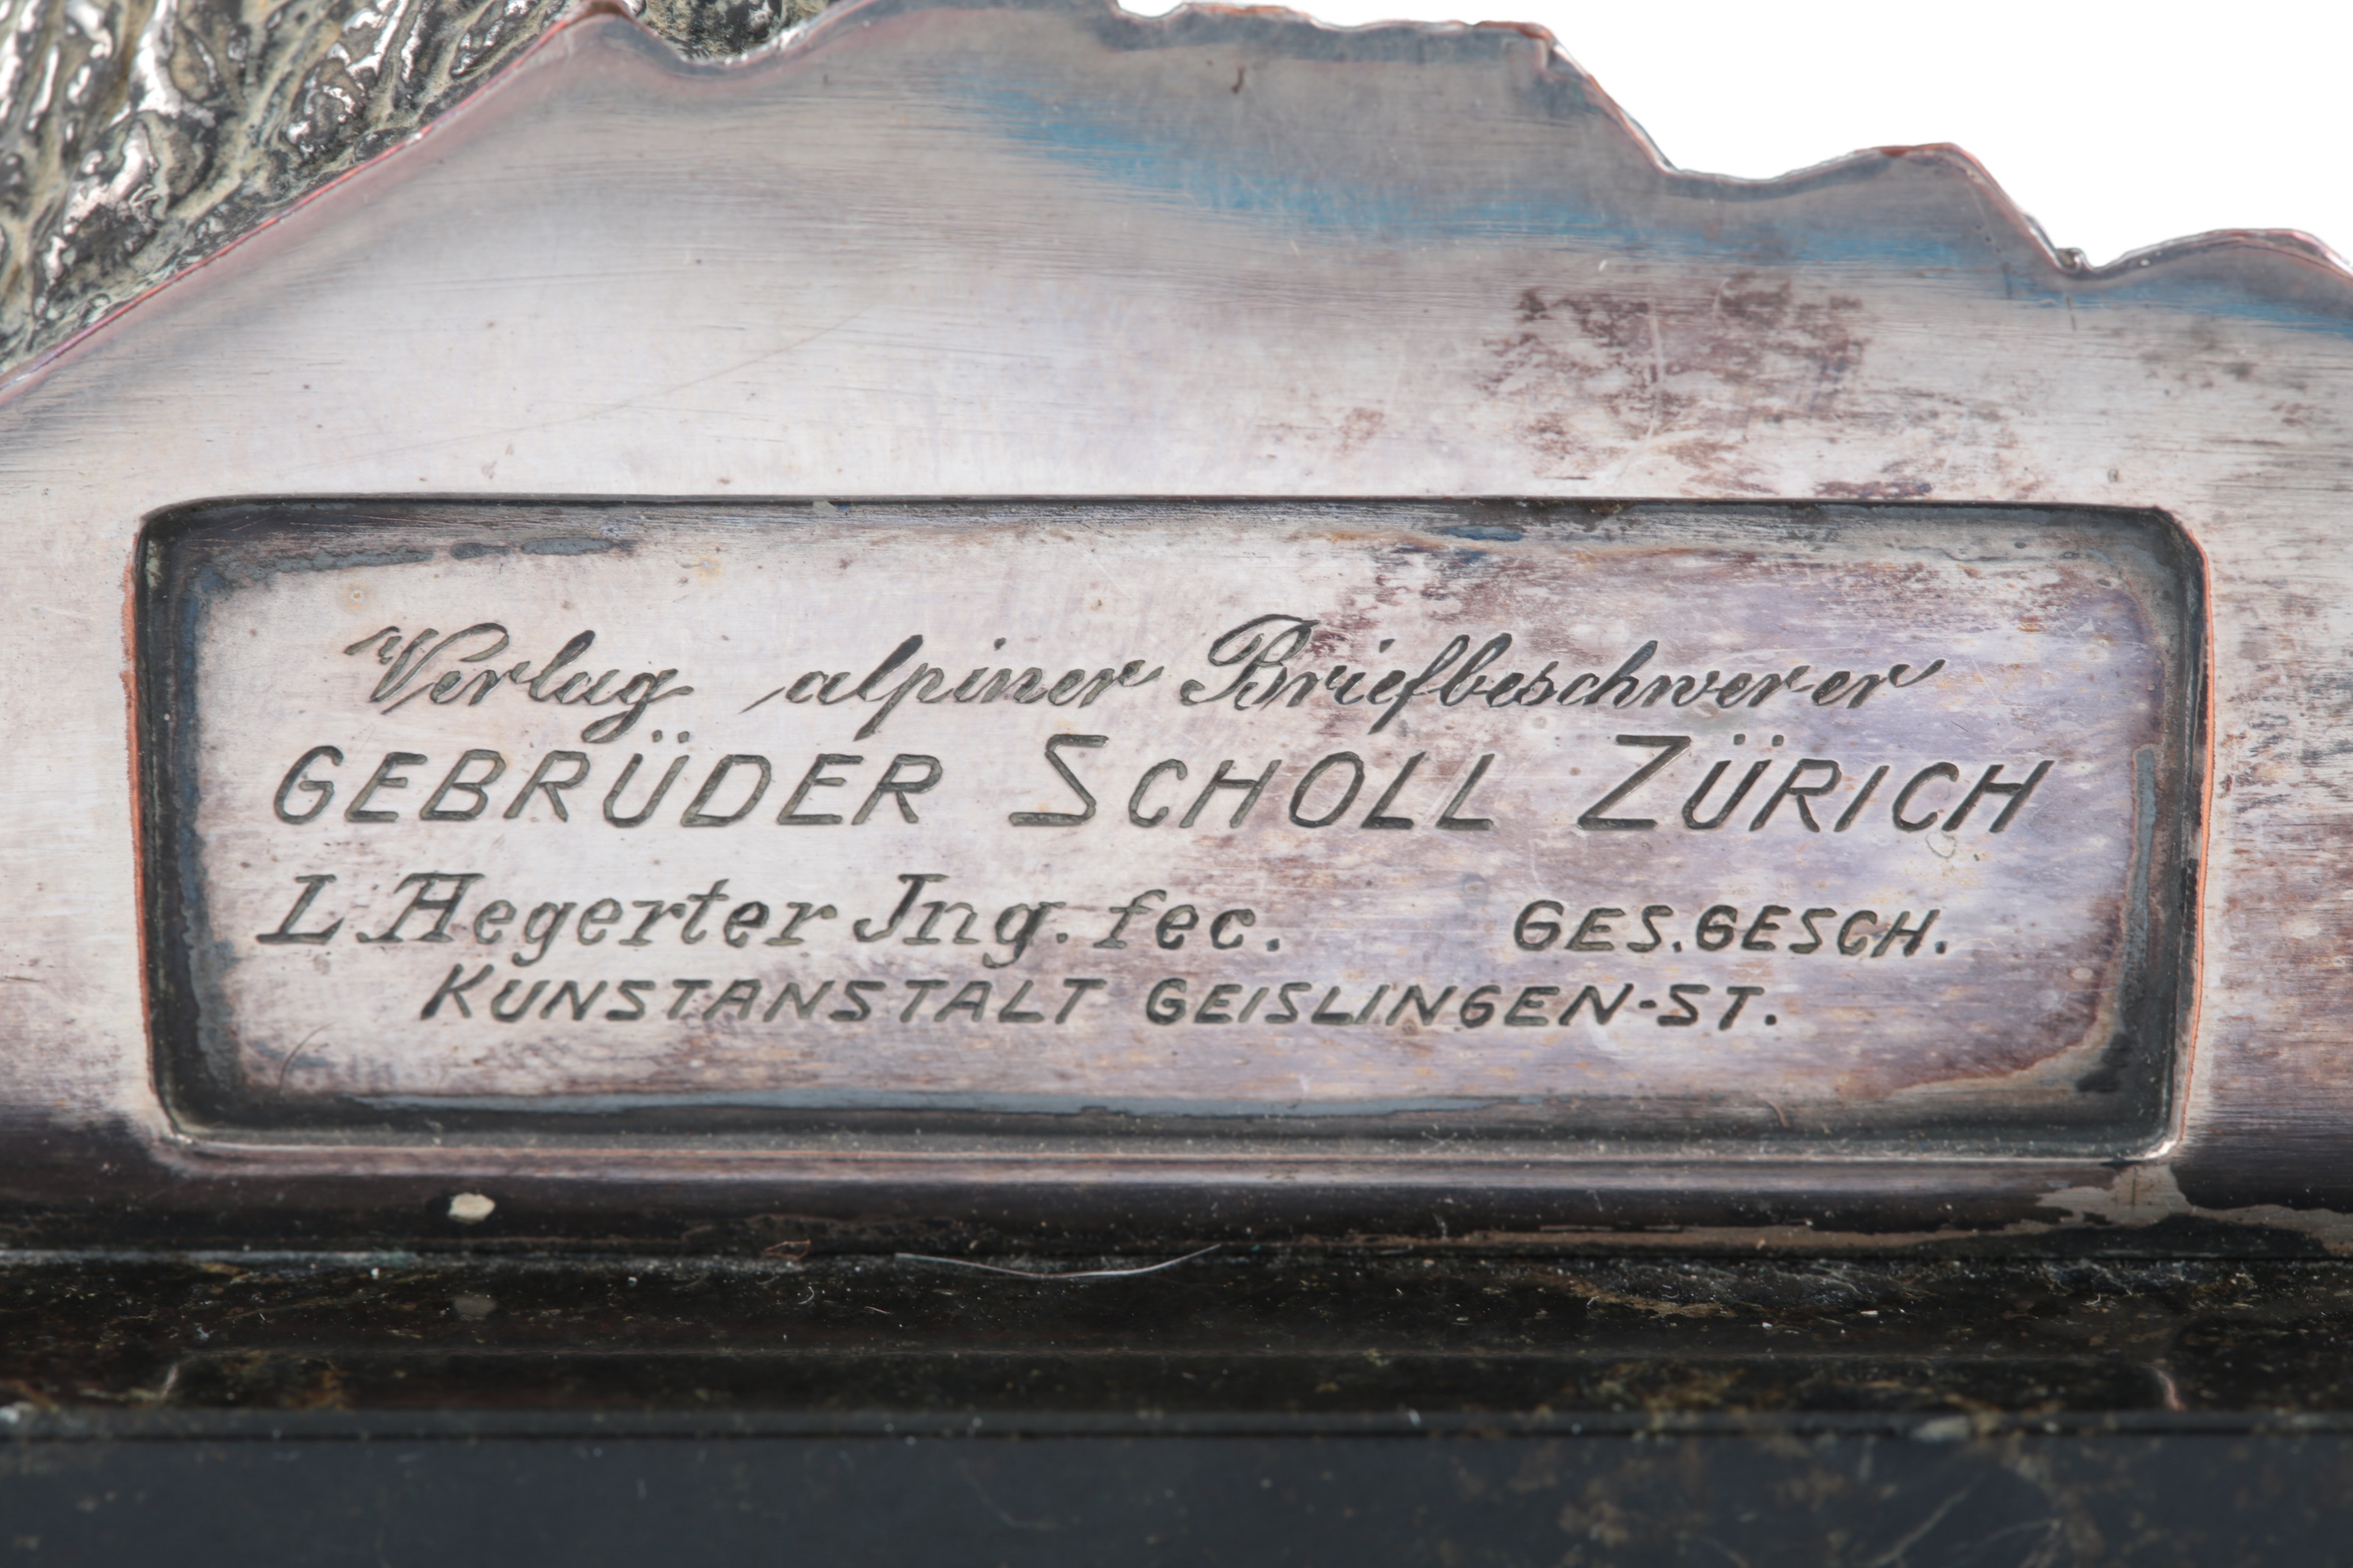 Verlag alpiner Briefbeschwerer
GEBRÜDER SCHOLL ZÜRICH
L. Aegerter Jng. fec. GES. GESCH.
KUNSTANSTALT GEISLINGEN-ST.